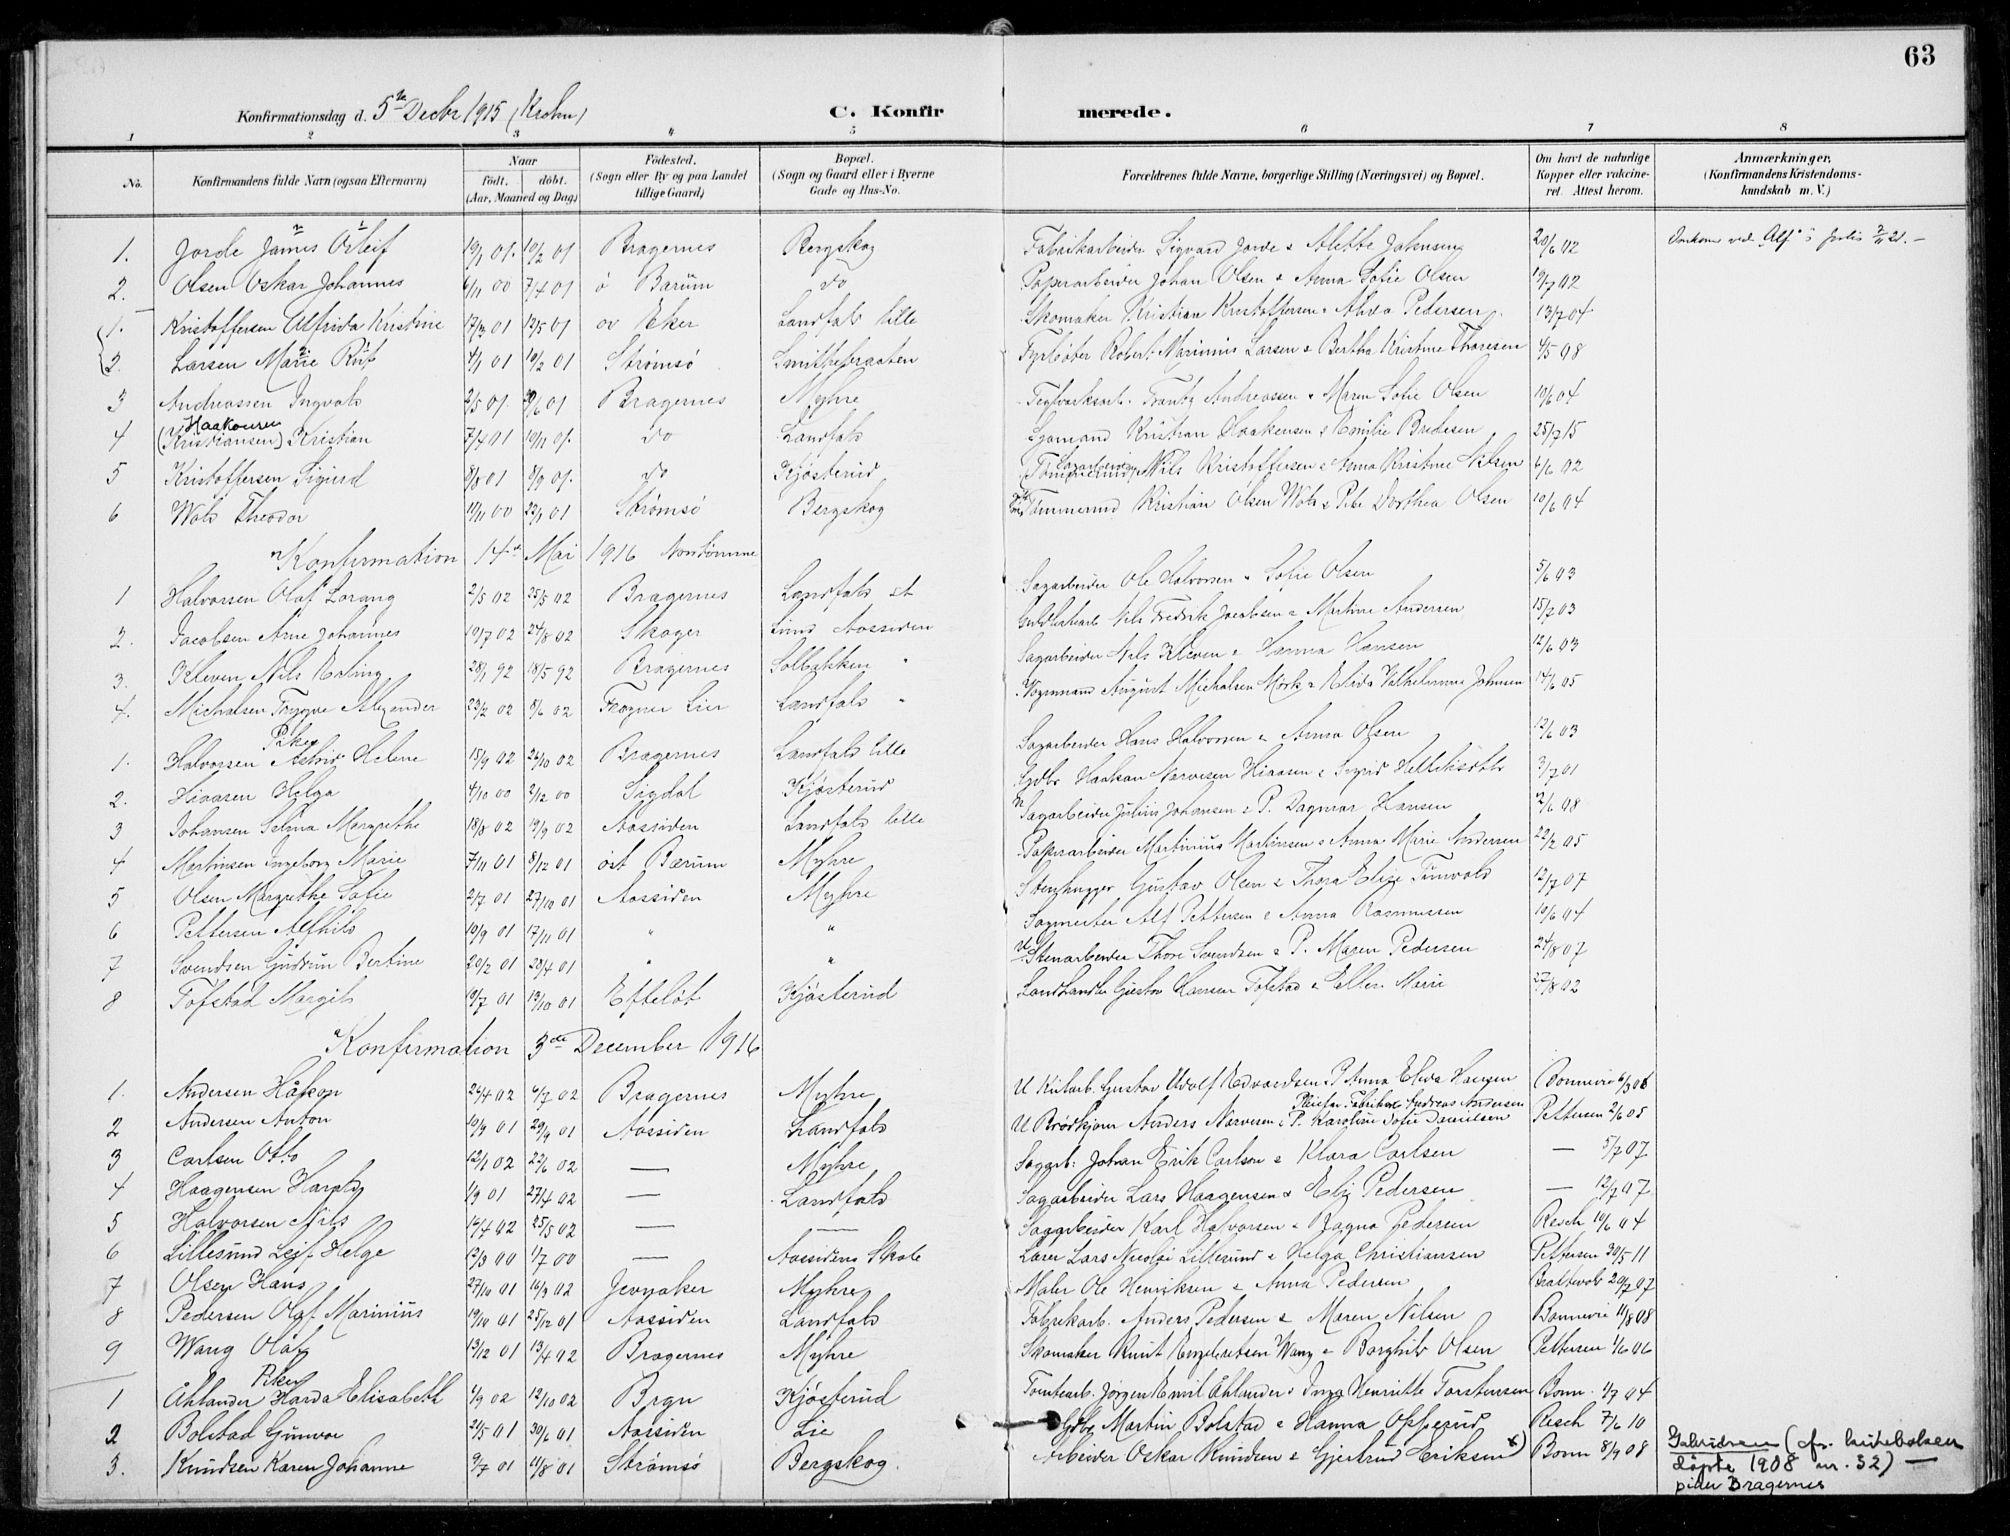 63
Konfirmationsdag d. 5te Decbr 1915 (Krohn)
C. Konfirmerede.
1 2 3 4 5 6 7 8
No. Konfirmandens fulde Navn (ogsaa Efternavn) Naar födt. döbt. (Aar, Maaned og Dag) Födested. (Sogn eller By og paa Landet tillige Gaard) Bopæl. (Sogn og Gaard eller i Byerne Gade og Hus-No. Forældrenes fulde Navne, borgerlige Stilling (Næringsvei) og Bopæl. Om havt de naturlige Kopper eller vakcineret. Attest herom. Anmærkninger. (Konfirmandens Kristendomskundskab m. V.)
1. Jorde James Osleif 19/1 01. 10/2 01 Bragernes Bergskog Fabrikarbeider Sigvard Jorde & Alette Johnsen 20/6 02 Omkom ved "Alf" i
2. Olsen Oskar Johannes 6/11 00 7/4 01 ö Bærum do Papirarbeider Johan Olsen & Anna Sofie Olsen 19/7 02
1. Kristoffersen Alfrida Kristine 17/3 01 12/5 01 öv Eker Landfald lille Skomaker Kristian Kristoffersen & Alida Pedersen 13/7 04
2. Larsen Marie Rut 4/1 01 10/2 01 Strømsö Smithebergaten Fyrböter Robert Marinius Larsen & Bertha Kristine Thoresen 4/5 08
3 Andreassen Ingvald 2/5 01. /6 01 Bragernes Myhre Teglverksarb. Frantz Andreassen & Maren Sofie Olsen 10/6 04
4 Haakonsen (Kristiansen) Kristian 7/4 01 10/11 01. do Landfald Sjømand Kristian Haakensen & Emilie Bredesen 25/7 15
5 Kristoffersen Sigurd 8/8 01 8/9 01. do Kjøsterud Sagarbeider (Tømmermd) Nils Kristoffersen & Anna Kristine Nilsen 6/6 02
6 Wold Theodor 11/11 00 22/1 01 Strømsö Bergskog Tömmermd Kristian Olsen Wold & Dorthea Olsen 10/6 04
Konfirmation 14de Mai 1916
1 Halvorsen Olaf Lorang 2/5 02 25/5 02 Bragernes Landfald Sagarbeider Ole Halvorsen & Sofie Olsen 5/6 03
2. Jacobsen Arne Johannes 10/7 02 24/8 02 Skoger Lund Aassiden Nils Fredrik Jacobsen & Martine Andersen 15/7 03
3. Kleven Nils Erling 28/1 92 18/5 92 Bragernes Solbakken " Sagarbeider Nils Kleven & Hanna Hansen 12/6 03
4. Michalsen Trygve Alexander 23/2 02 8/6 02 Frogner Lier Landfald " Vognmand August Michalsen Mork & Elida Vilhelmine Johnsen 14/6 05
Piker
1. Halvorsen Astrid Helene 15/9 02 26/10 02 Bragernes Landfald lille Sagarbeider Hans Halvorsen & Anna Olsen 12/6 03
2. Hiaasen Helga 4/10 00 2/12 00 Sigdal Kjøsterud Gdbr Haakon Narvesen Hiaasen & Sigrid 3/7 01
3 Johansen Selma Margrethe 18/8 02 19/9 02 Aassiden Landfald lille Sagarbeider Julius Johansen & P. Dagmar Hansen 2/6 08
4 Martinsen Ingeborg Marie 7/11 01 8/12 01 öst Bærum Myhre Papirarbeider Martinius Martinsen & Anna Marie Andersen 22/2 05
5 Olsen Margrethe Sofie 2/7 01 27/10 01 Aassiden Myhre Stenhugger Gustav Olsen & Thora Elise Tinvold 12/7 07
6 Pettersen Alfhild 10/9 01 17/11 01 " " Sagmester Alf Pettersen & Anna Rasmussen 10/6 04
7 Svendsen Gudrun Bertine 20/2 01 28/4 01 " " Stenarbeider Thore Svendsen & P. Maren Pedersen 24/8 07
8 Tofstad Margit 10/7 01 13/10 01 Efteløt Kjøsterud Landhandler Gustav Hansen Tofstad & Ellen Marie 27/8 02
Konfirmation 3de December 1916
1. Andersen Håkon 24/4 02 6/7 02 Bragernes Myhre U Gustav Adolf Edvardsen P Anna Elida Hansen Bonnevie 6/3 06
2 Andersen Anton 10/9 01 29/9 01 Aassiden Landfald U Brødkjører Anders Narvesen & P. Karoline Sofie Danielsen Pettersen 2/6 05
3 Carlsen Otto 12/1 02 22/6 02 — Myhre Sagarb. Johan Erik Carlson & Klara Carlsen — 5/7 07
4 Haagensen Harald 1/9 01 27/4 02 — Landfald Sagarbeider Lars Haagensen & Eliz Pedersen — 12/7 07
5 Halvorsen Nils 14/4 02 25/5 02 — — Sagarbeider Karl Halvorsen & Ragna Pedersen Resch 10/6 04
6 Lillesund Leif Helge 12/3 00 1/7 00 — Aassidens Skole Lærer Lars Nicolai Lillesund & Helga Christiansen Pettersen 30/5 11
7 Olsen Hans 27/10 01 16/3 02 Jevnaker Myhre Maler Ole Henriksen & Anna Pedersen Brattevold 20/7 07
8 Pedersen Olaf Marinius 19/10 01 25/12 01 Aassiden Landfald Fabrikarb. Anders Pedersen & Maren Nilsen Bonnevie 11/8 08
9 Wang Olaf 13/12 01 13/4 02 Bragernes Myhre Skomaker Knut Engebretsen Wang & Borghild Olsen Pettersen 1/6 06
Piker
1 Åhlander Harda Elisabeth 1/9 02 12/10 02 Brgn Kjøsterud Tomtearb. Jørgen Emil Åhlander & Inga Henriette Torstensen Bonn. 1/7 04
2 Bolstad Gunvor 21/5 01 30/6 01 Aassiden Lie Gdbr Martin Bolstad & Hanna Opperud Resch 7/6 10
3. Knudsen Karen Johanne 9/7 01 11/8 01 Strømsö Bergskog Arbeider Oskar Knudsen & Gjertrud Eriksen x) Bonn 8/9 08 Gabrielsen (cfr. kirkebolsen
döpte 1908 nr. 32) —
Bragernes